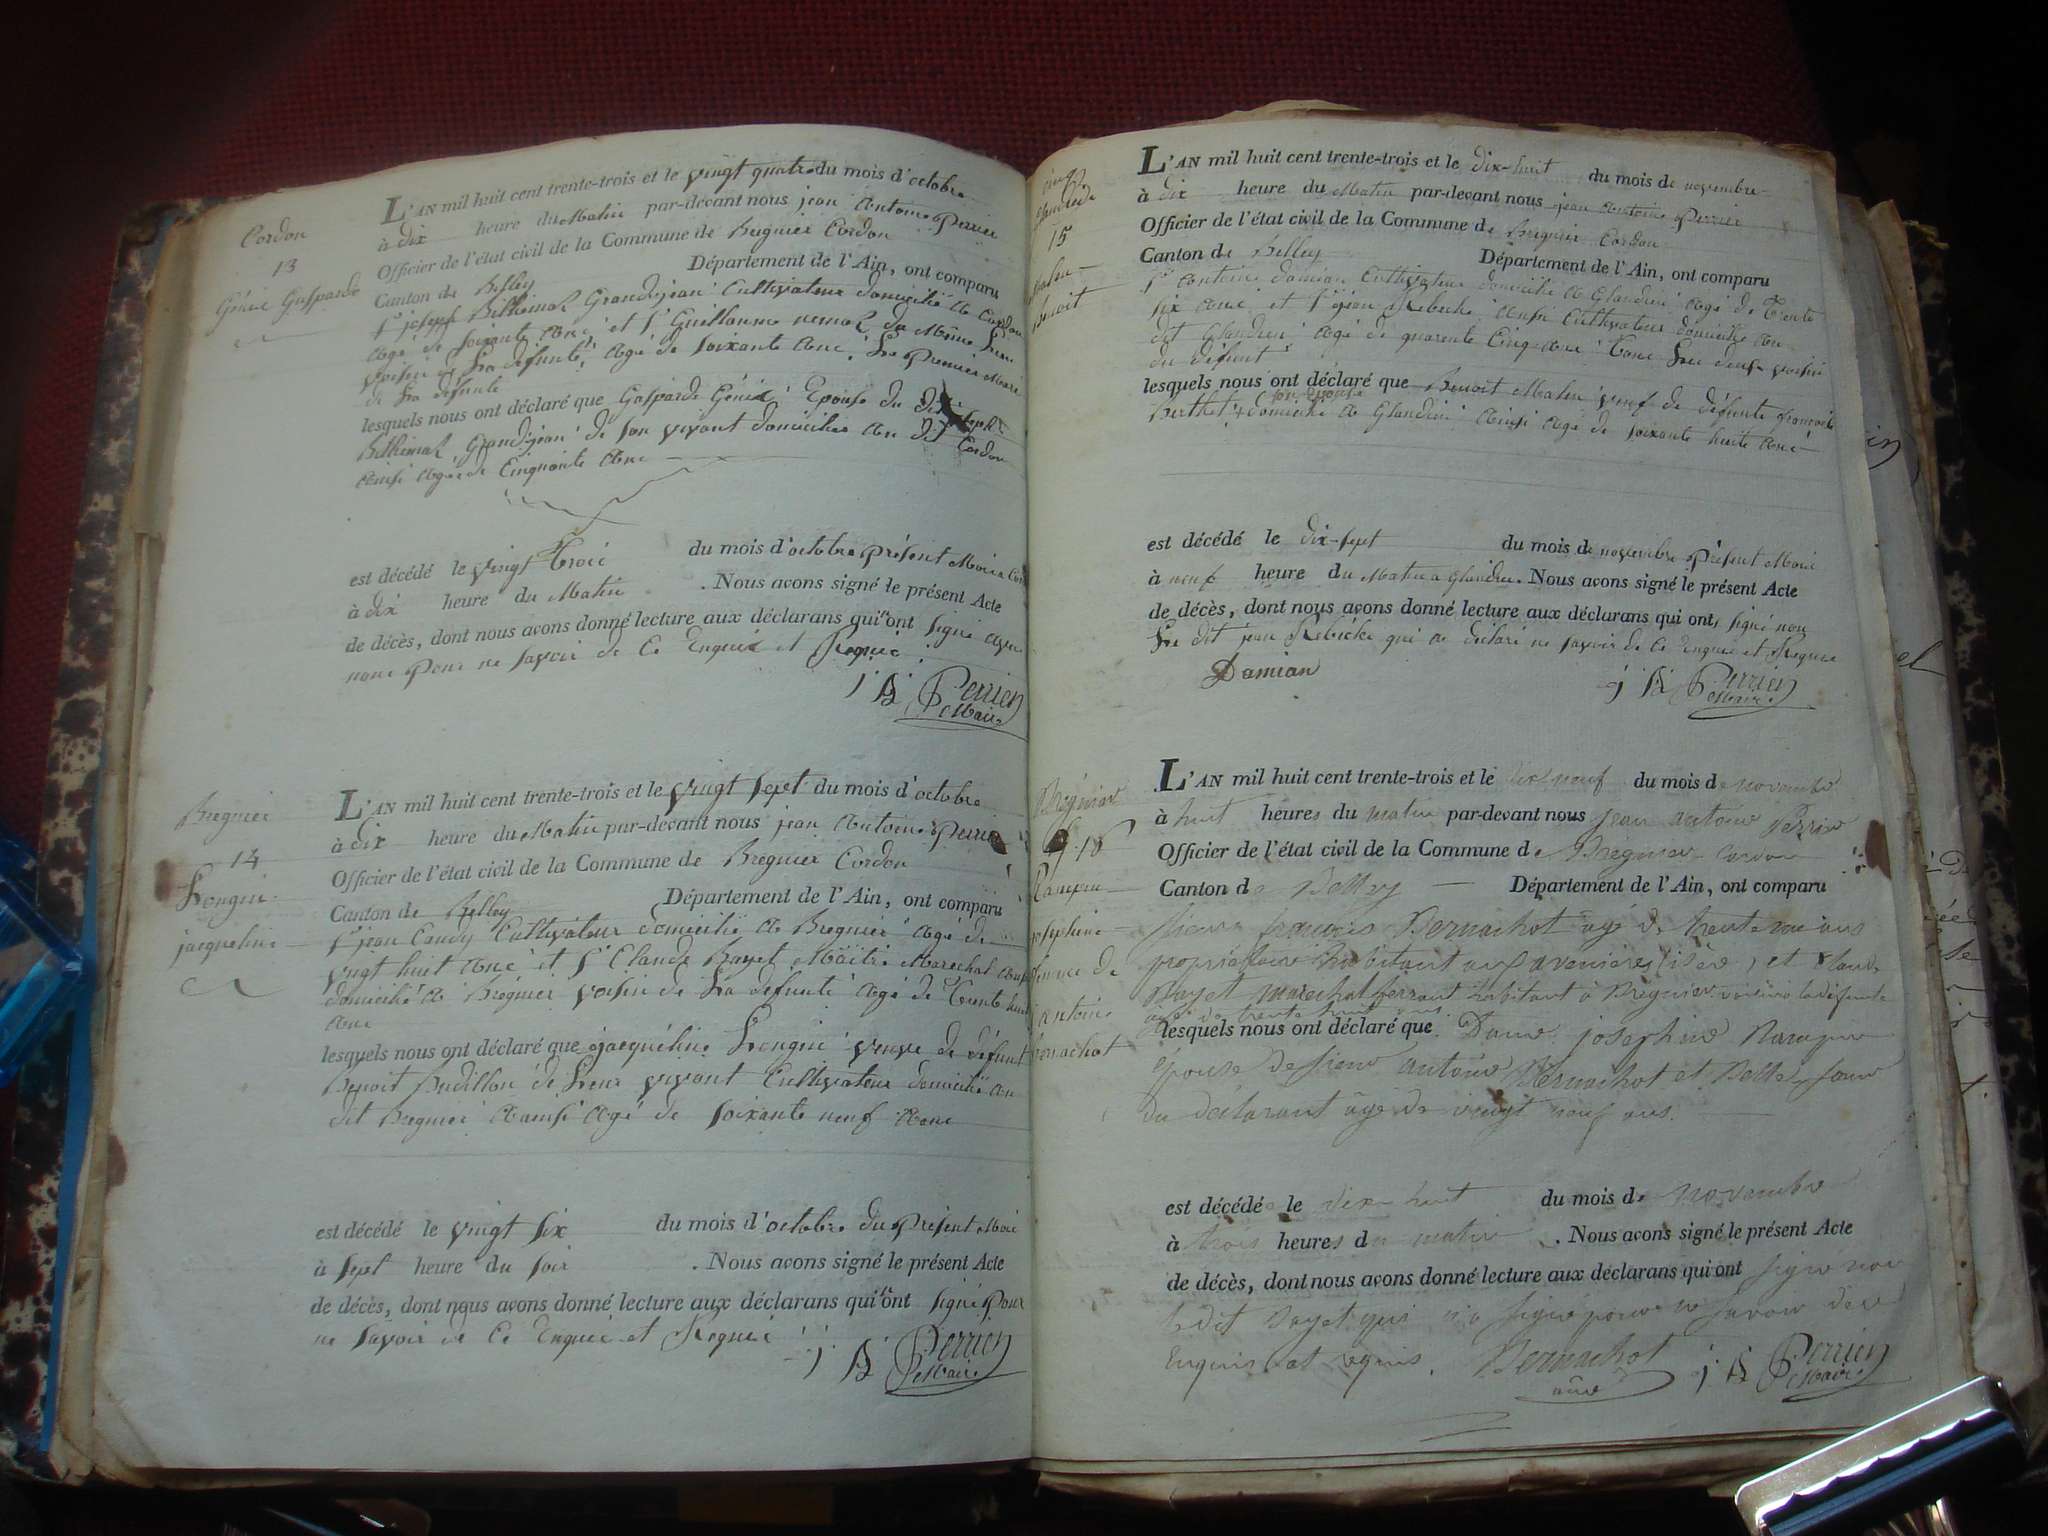 Cordon
13
Génix Gasparde
L'AN mil huit cent trente-trois et le vingt quatre du mois d'octobre
à dix heure du Matin par-devant nous jean Antoine Perrier
Officier de l'état civil de la Commune de Bregnier Cordon
Canton de Belley Département de l'Ain, ont comparu
Sr joseph Grandjean Cultivateur domicilié à Cordon
Agé de soixante Ans et Sr Guillaume du Même Lieu
voisin de La défunte, Agé de soixante Ans, Le Premier Mari
de La défunte
lesquels nous ont déclaré que Gasparde Génix Epouse du dit joseph
Grandjean de son vivant domiciliée Au dit Cordon
Ainsi Agée de Cinquante Ans
est décédé le vingt trois du mois d'octobre présent Mois à
à dix heure du Matin . Nous avons signé le présent Acte
de décès, dont nous avons donné lecture aux déclarans qui n'ont signé avec
nous pour ne savoir de Ce Enquis et Requis
j A Perrier
Maire
Bregnier
14
Longin
jacqueline
L'AN mil huit cent trente-trois et le vingt sept du mois d'octobre
à dix heure du Matin par-devant nous jean Antoine Perrier
Officier de l'état civil de la Commune de Bregnier Cordon
Canton de Belley Département de l'Ain, ont comparu
Sr jean Candy Cultivateur domicilié à Bregnier Agé de
vingt huit Ans et Sr Claude Rayet Maître Marechal Aussi
domicilié à Bregnier voisin de La défunte Agé de trente huit
Ans
lesquels nous ont déclaré que jacqueline Longin veuve de défunt
Benoit Budillon de Leur vivant Cultivateur domicilié au
dit Bregnier Ainsi Agé de soixante neuf Ans
est décédé le vingt six du mois d'octobre du Présent Mois
à sept heure du soir . Nous avons signé le présent Acte
de décès, dont nous avons donné lecture aux déclarans qui n'ont signé Pour
ne savoir de Ce Enquis et Requis
j A Perrier
Maire
15
Benoit
L'AN mil huit cent trente-trois et le dix-huit du mois de novembre
à dix heure du Matin par-devant nous jean Antoine Perrier
Officier de l'état civil de la Commune de Bregnier Cordon
Canton de Belley Département de l'Ain, ont comparu
Sr Antoine Damian Cultivateur domicilié à Glandieu Agé de trente
six Ans et Sr jean Aussi Cultivateur domicilié Au
dit Glandieu Agé de quarente Cinq Ans tous Les deux voisin
du défunt
lesquels nous ont déclaré que Benoit veuf de défunte françoise
Berthet son épouse domicilié à Glandieu Ainsi Agé de soixante huit Ans
est décédé le dix-sept du mois de novembre Présent Mois
à neuf heure du Matin à Glandieu . Nous avons signé le présent Acte
de décès, dont nous avons donné lecture aux déclarans qui ont signé non
Le dit jean qui a déclaré ne savoir de Ce Enquis et Requis
Damian
j A Perrier
Maire
Bregnier
16
josephine
femme de
antoine
Bernachot
L'AN mil huit cent trente-trois et le dix-neuf du mois de novembre
à huit heures du matin par-devant nous jean antoine Perrier
Officier de l'état civil de la Commune de Bregnier Cordon
Canton de Belley Département de l'Ain, ont comparu
sieur françois Bernachot agé de trente ans
propriétaire habitant aux avenieres (isère) et Claude
Rayet marechal ferrant habitant à Bregnier voisin de la défunte
agé de trente huit ans
lesquels nous ont déclaré que Dame josephine
épouse de sieur antoine Bernachot et Belle soeur
du déclarant âgé de vingt neuf ans.
est décédée le dix-huit du mois de novembre
à trois heures du matin . Nous avons signé le présent Acte
de décès, dont nous avons donné lecture aux déclarans qui ont signé non
le dit Rayet qui n'a signé pour ne savoir de ce
Enquis et requis.
Bernachot
ainé
j A Perrier
Maire